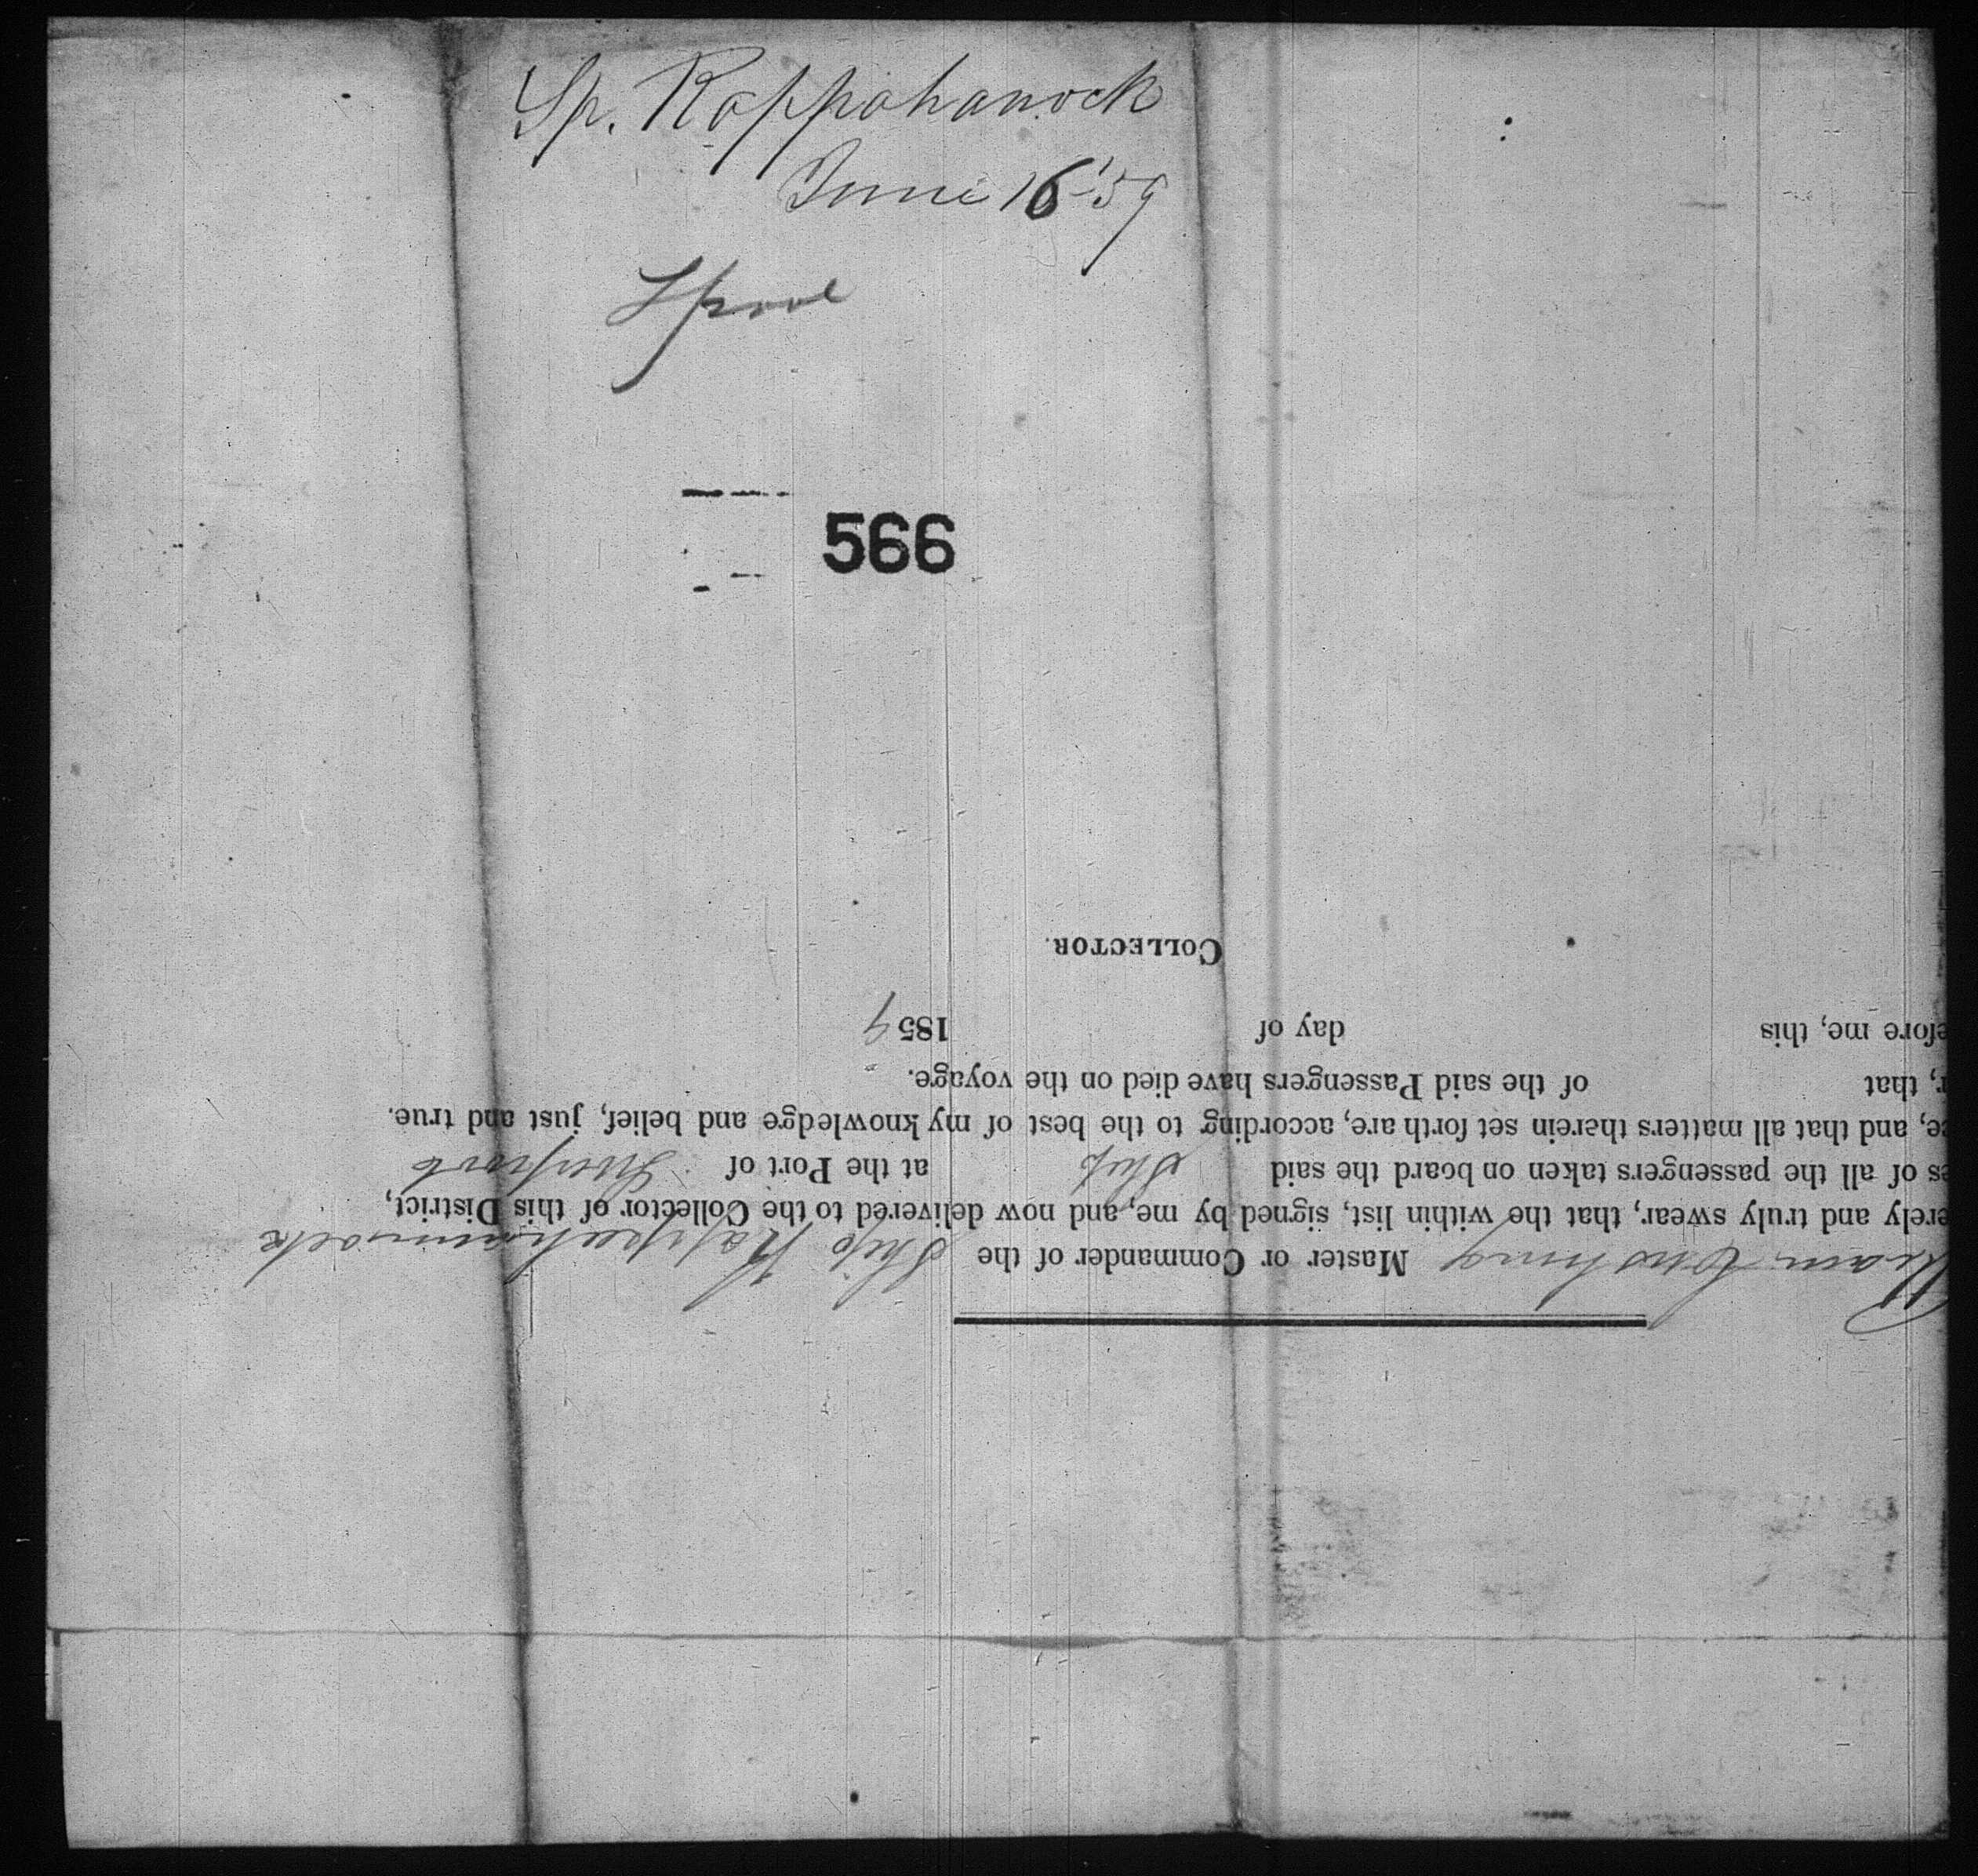 Sp. Rappahanock
June 16 '59
Lpool
566
Cushing Master or Commander of the Ship Rappahannock
erely and truly swear, that the within list, signed by me, and now delivered to the Collector of this District,
es of all the passengers taken on board the said Ship at the Port of Liverpool
ce, and that all matters therein set forth are, according to the best of my knowledge and belief, just and true.
r, that of the said Passengers have died on the voyage.
efore me, this day of 1859
COLLECTOR.